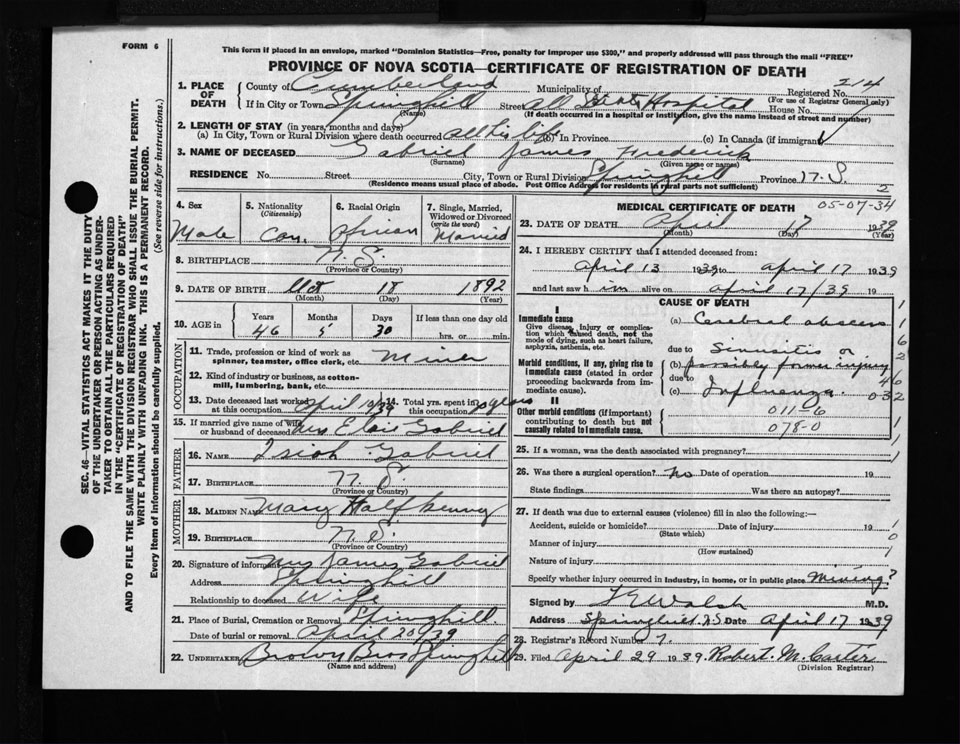 FORM 6
This form if placed in an envelope, marked "Dominion Statistics—Free, penalty for improper use $300," and properly addressed will pass through the mail "FREE"
PROVINCE OF NOVA SCOTIA—CERTIFICATE OF REGISTRATION OF DEATH
1. PLACE OF DEATH
County of Cumberland Municipality of Registered No. 214
(For use of Registrar General only)
If in City or Town Springhill Street All Saints Hospital House No.
(Name) (If death occurred in a hospital or institution, give the name instead of street and number)
2. LENGTH OF STAY (in years, months and days)
(a) In City, Town or Rural Division where death occurred all his life (b) In Province (c) In Canada (if immigrant)
3. NAME OF DECEASED Gabriel James Frederick
(Surname) (Given name or names)
RESIDENCE No. Street City, Town or Rural Division Springhill Province N.S.
(Residence means usual place of abode. Post Office Address for residents in rural parts not sufficient) 2
4. Sex
Male
5. Nationality
(Citizenship)
Can.
6. Racial Origin
African
7. Single, Married, Widowed or Divorced
(write the word)
Married
8. BIRTHPLACE N.S.
(Province or Country)
9. DATE OF BIRTH 18 1892
(Month) (Day) (Year)
10. AGE in
Years Months Days If less than one day old
46 5 30 hrs. or min.
OCCUPATION
11. Trade, profession or kind of work as spinner, teamster, office clerk, etc. Miner
12. Kind of industry or business, as cotton-mill, lumbering, bank, etc.
13. Date deceased last worked at this occupation April 10/39
14. Total yrs. spent in this occupation years
15. If married give name of wife or husband of deceased Mrs Elsie Gabriel
FATHER
16. NAME Gabriel
17. BIRTHPLACE N.S.
(Province or Country)
MOTHER
18. MAIDEN NAME Mary Halfkenny
19. BIRTHPLACE N.S.
(Province or Country)
20. Signature of informant Mrs James Gabriel
Address Springhill
Relationship to deceased Wife
21. Place of Burial, Cremation or Removal Springhill
Date of burial or removal April 20/39
22. UNDERTAKER Brown Bros Springhill
(Name and address)
MEDICAL CERTIFICATE OF DEATH 05-07-34
23. DATE OF DEATH April 17 1939
(Month) (Day) (Year)
24. I HEREBY CERTIFY that I attended deceased from:
April 13 1939 to April 17 1939
and last saw him alive on April 17/39 19
CAUSE OF DEATH
I
Immediate cause
Give disease, injury or complication which caused death, not the mode of dying, such as heart failure, asphyxia, asthenia, etc.
(a) Cerebral abscess
due to Sinusitis or
Morbid conditions, if any, giving rise to immediate cause (stated in order proceeding backwards from immediate cause).
(b) possibly former injury
due to
(c) Influenza.
II
Other morbid conditions (if important) contributing to death but not causally related to immediate cause.
011-6
078-0
1
1
6
2
46
032
1
1
25. If a woman, was the death associated with pregnancy?
26. Was there a surgical operation? No Date of operation 19
State findings Was there an autopsy?
27. If death was due to external causes (violence) fill in also the following:—
Accident, suicide or homicide? Date of injury 19
(State which)
Manner of injury
(How sustained)
Nature of injury
1
0
1
1
Specify whether injury occurred in industry, in home, or in public place Mining?
Signed by Walsh M.D.
Address Springhill N.S. Date April 17 1939
28. Registrar's Record Number 7.
29. Filed April 29 1939 Robert. M. Carter
(Division Registrar)
SEC. 46—VITAL STATISTICS ACT MAKES IT THE DUTY
OF THE UNDERTAKER OR PERSON ACTING AS UNDER-
TAKER TO OBTAIN ALL THE PARTICULARS REQUIRED
IN THE "CERTIFICATE OF REGISTRATION OF DEATH"
AND TO FILE THE SAME WITH THE DIVISION REGISTRAR WHO SHALL ISSUE THE BURIAL PERMIT.
WRITE PLAINLY WITH UNFADING INK. THIS IS A PERMANENT RECORD.
Every item of information should be carefully supplied. (See reverse side for instructions.)